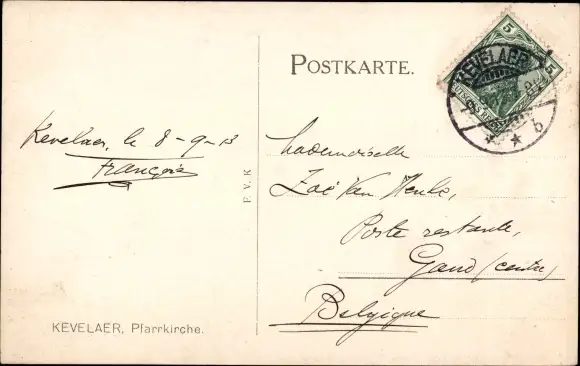 POSTKARTE.
5
5
DEUTSCHES REICH
KEVELAER
* * b
Kevelaer, le 8-9-13
François
Mademoiselle
Zoé Van
Poste restante,
Gand (centre)
Belgique
F. V. K
KEVELAER, Pfarrkirche.